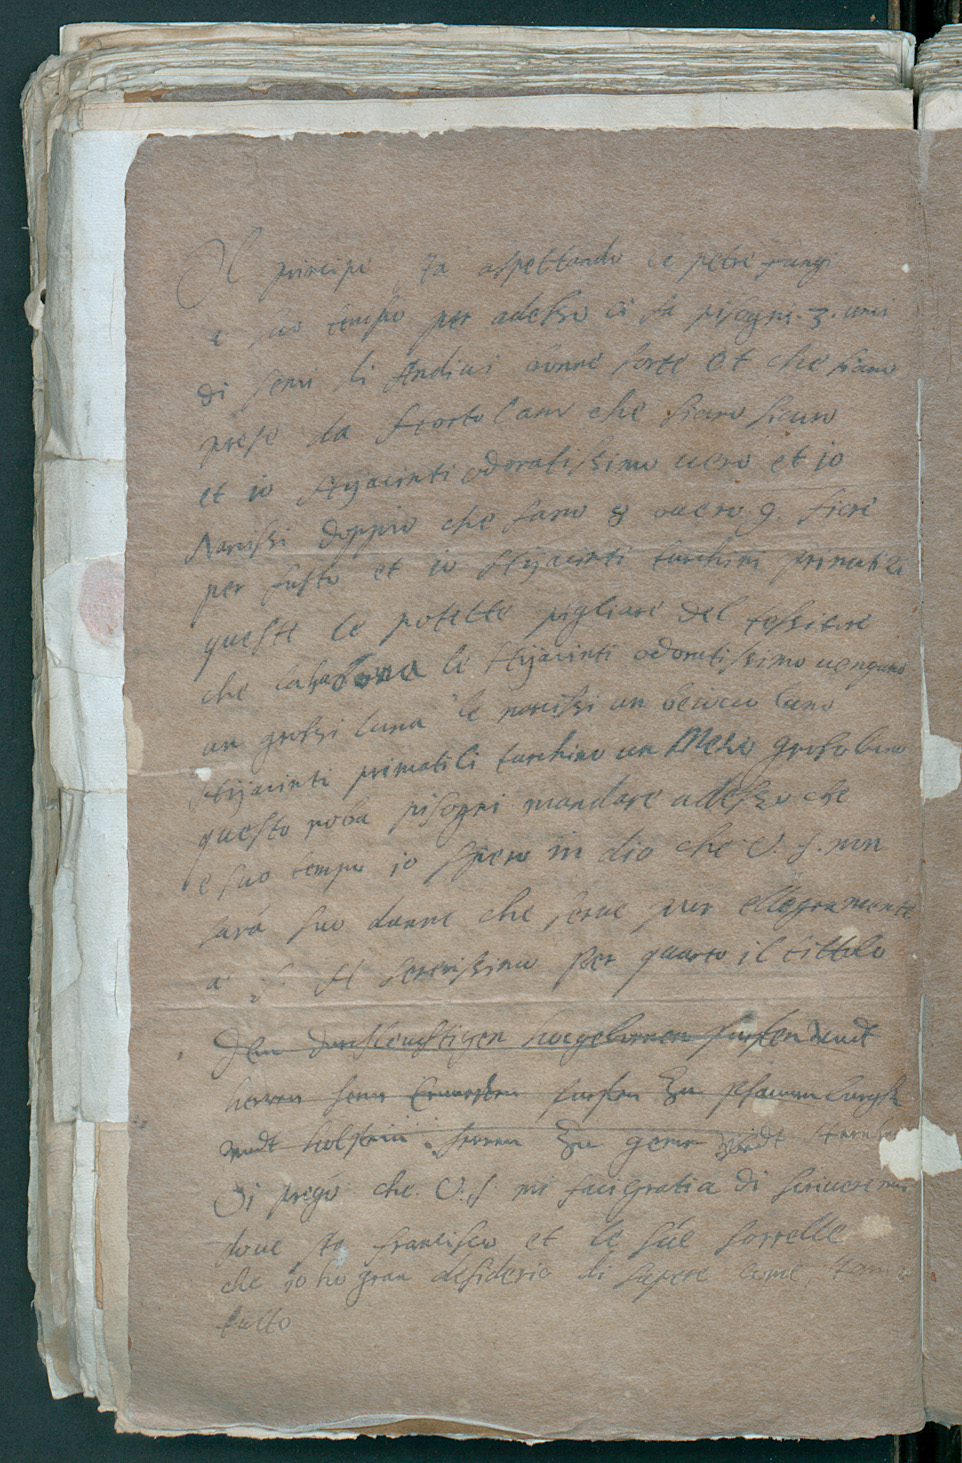 Il principe sta aspettando le petre fungi
a suo tempo per adesso ci fa pisogni. 3. unci
di semi di Andivi d'onne sorte et che siano
prese da Hortolam che siano sicuro
et io Hijacinti odoratissimo uero et io
Narcissi doppio che fano 8 ouero 9. fiori
per fusto et io Hijacinti turchini primatizi
queste le potette pigliare del tessitore
che le Hijacinti odoratissimo uengano
un grossi luna le narcissi un luno
Hijacinti primatili turchino un Meso groso luno
questo roba pisogni mandare adesso che
e suo tempo io spero in dio che V. S. non
sara suo danne che serue pur ellegramente
a S. A Serenissimo Per quanto il tittolo
Dem durchleuchtigen hocgebornen fursten undt
herren herrn Ernesten fursten zu schaumburgk
undt holstein. herren zu gemen undt
Di prego che. V. S. mi faci gratia di scriuere mi
doue sta Francisco et le sue sorrelle
che io ho gran desiderio di sapere come stano
tutto